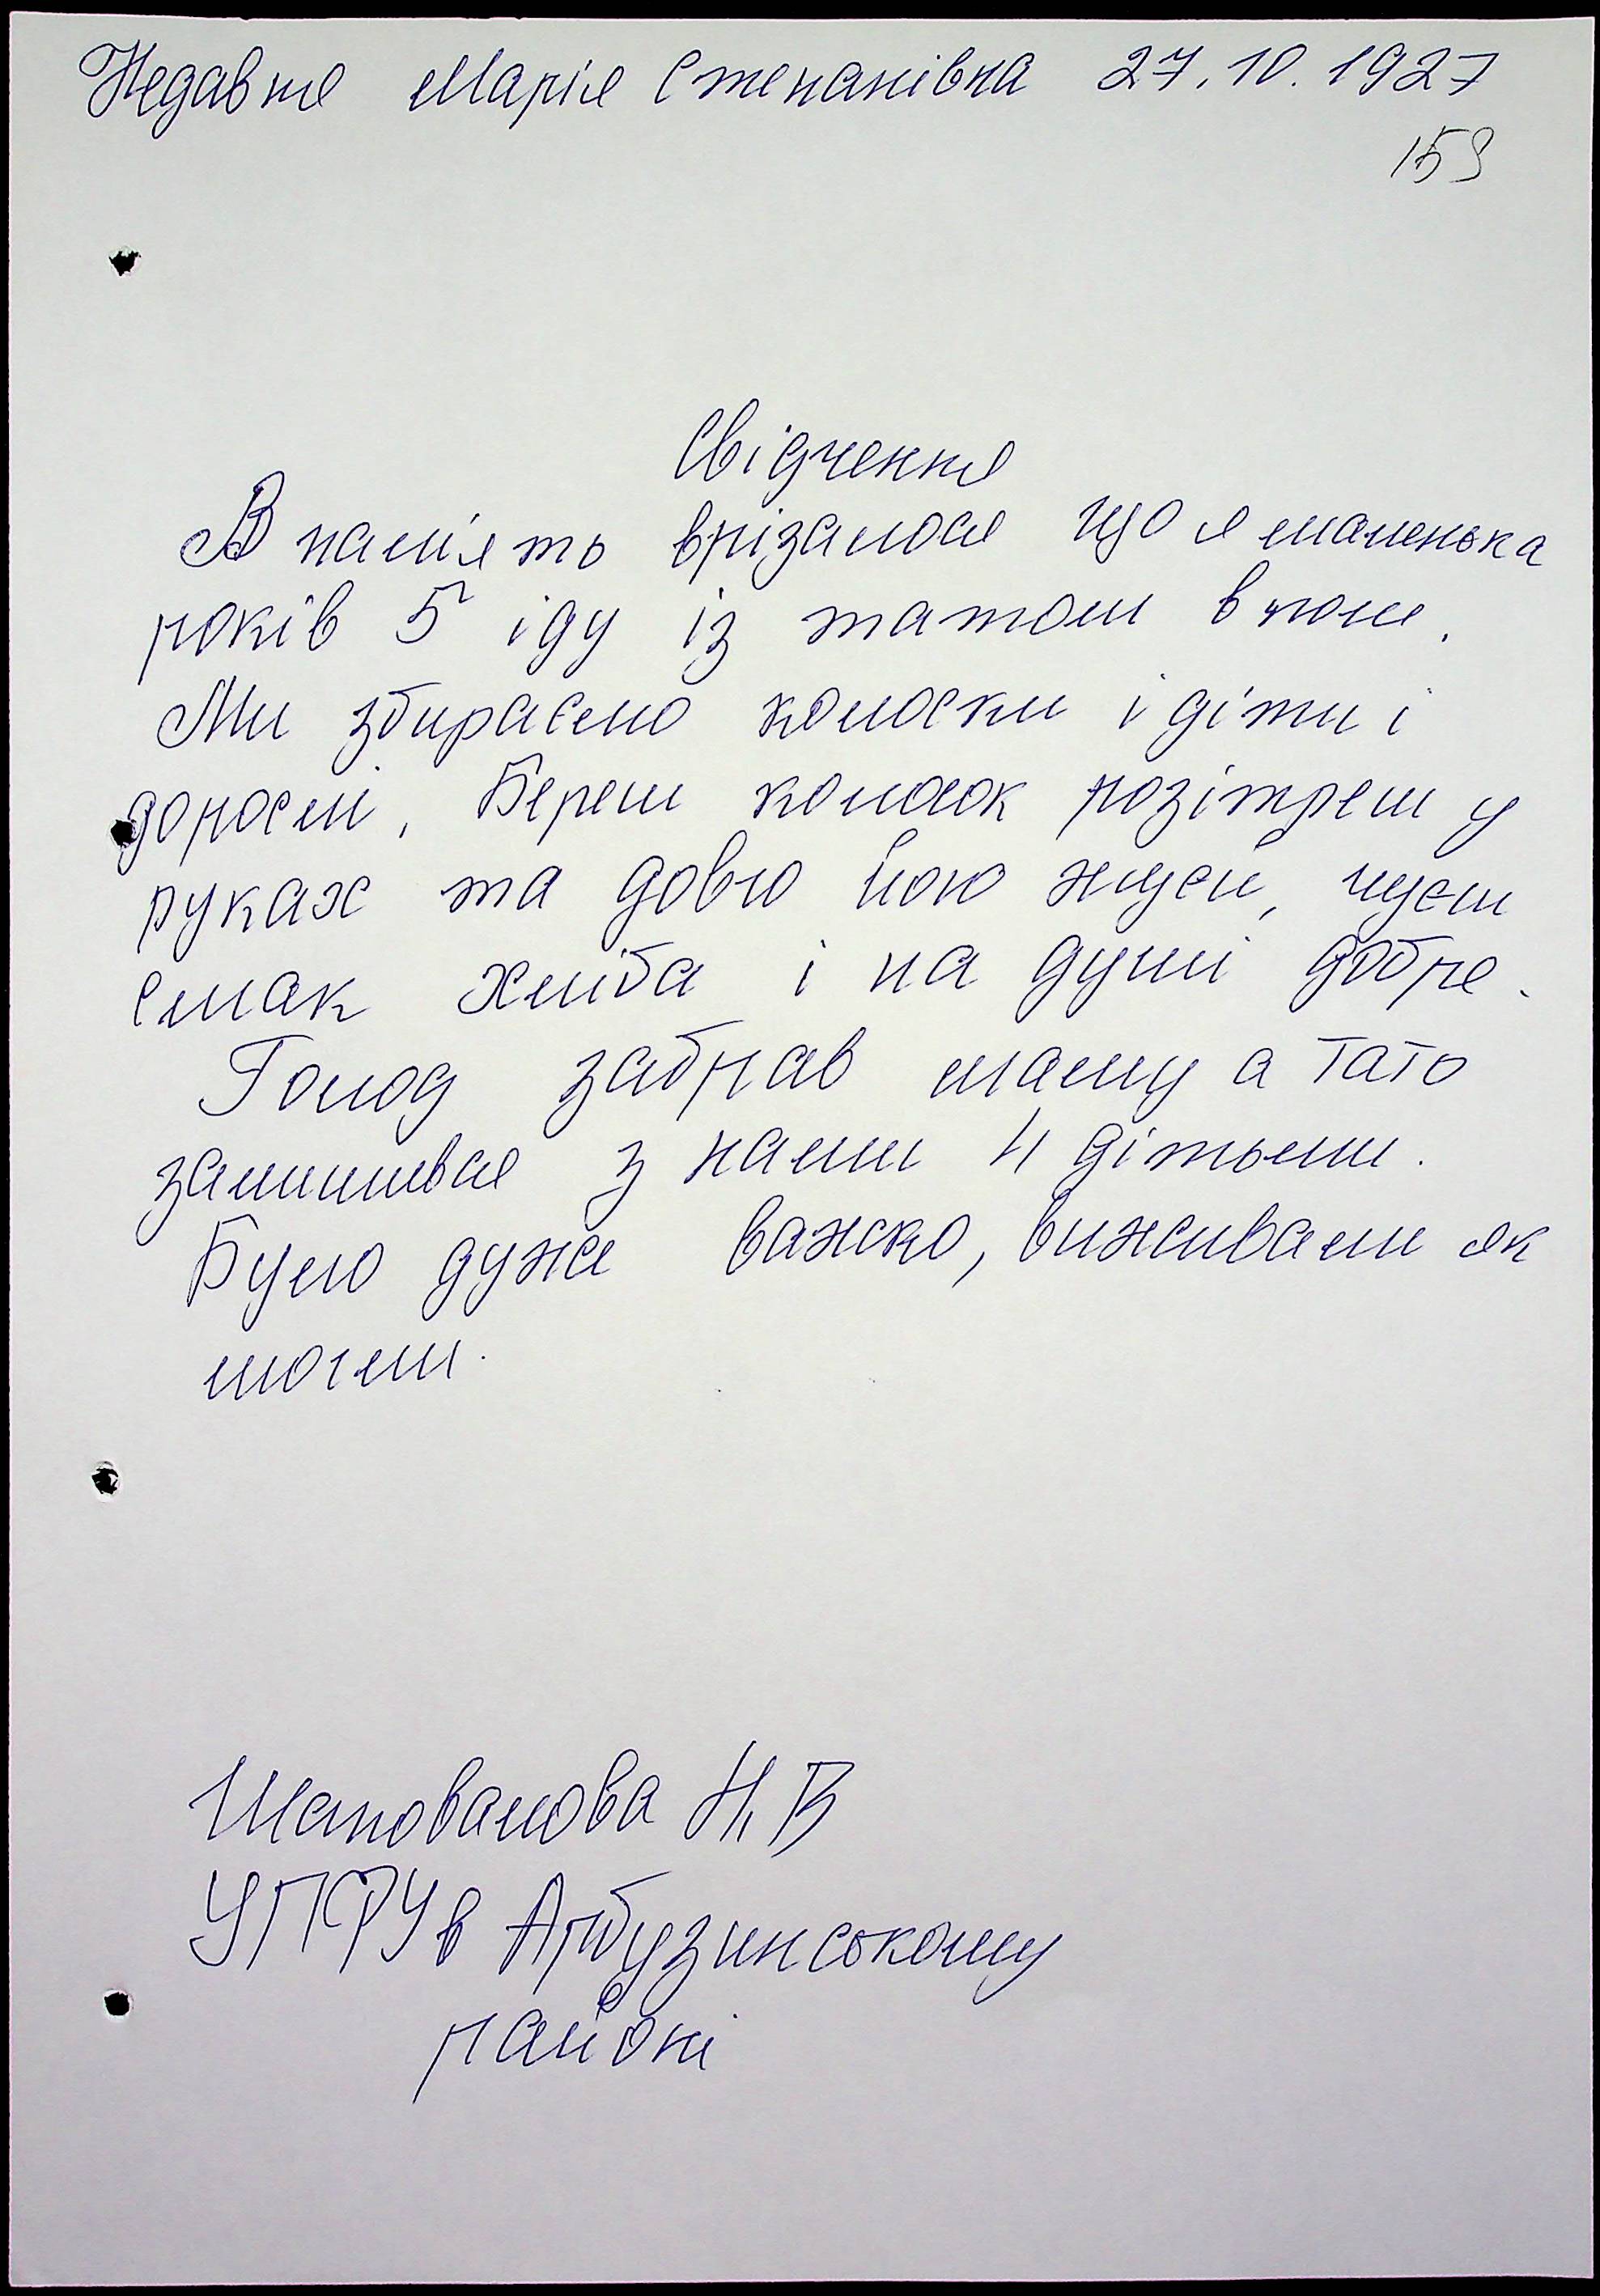 Недавня Марія Степанівна 27.10.1927
159
Свідчення
В пам'ять врізалося що я маленька
років 5 іду із татом в поле.
Ми збираємо колоски і діти і
дорослі. Береш колосок розітреш у
руках та довго його жуєш, чуєш
смак хліба і на душі добре.
Голод забрав маму а тато
залишився з нами 4 дітьми.
Було дуже важко, виживали як
могли.
Шаповалова Н.В
УПФУ в Арбузинському
районі